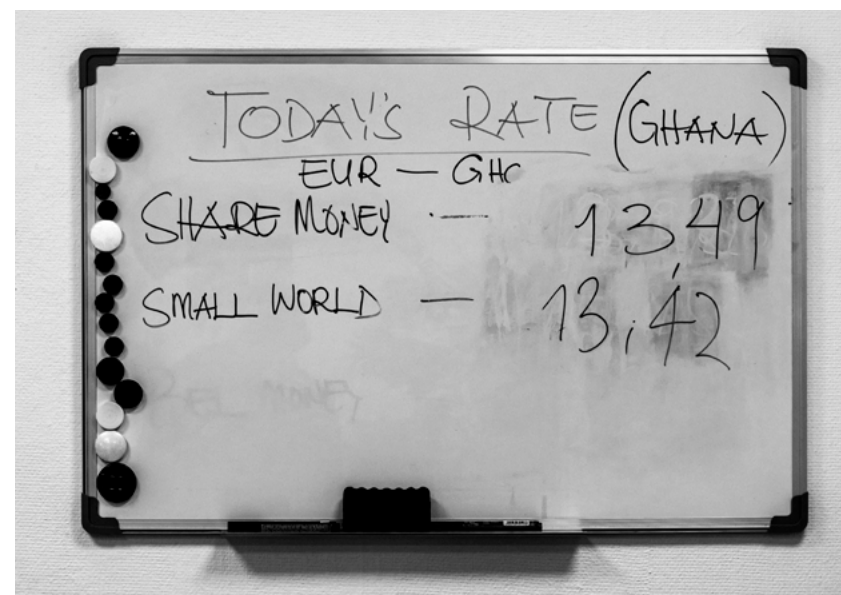 TODAY'S RATE (GHANA)
EUR — GHC
SHARE MONEY — 13,49
SMALL WORLD — 13,42
MONEY